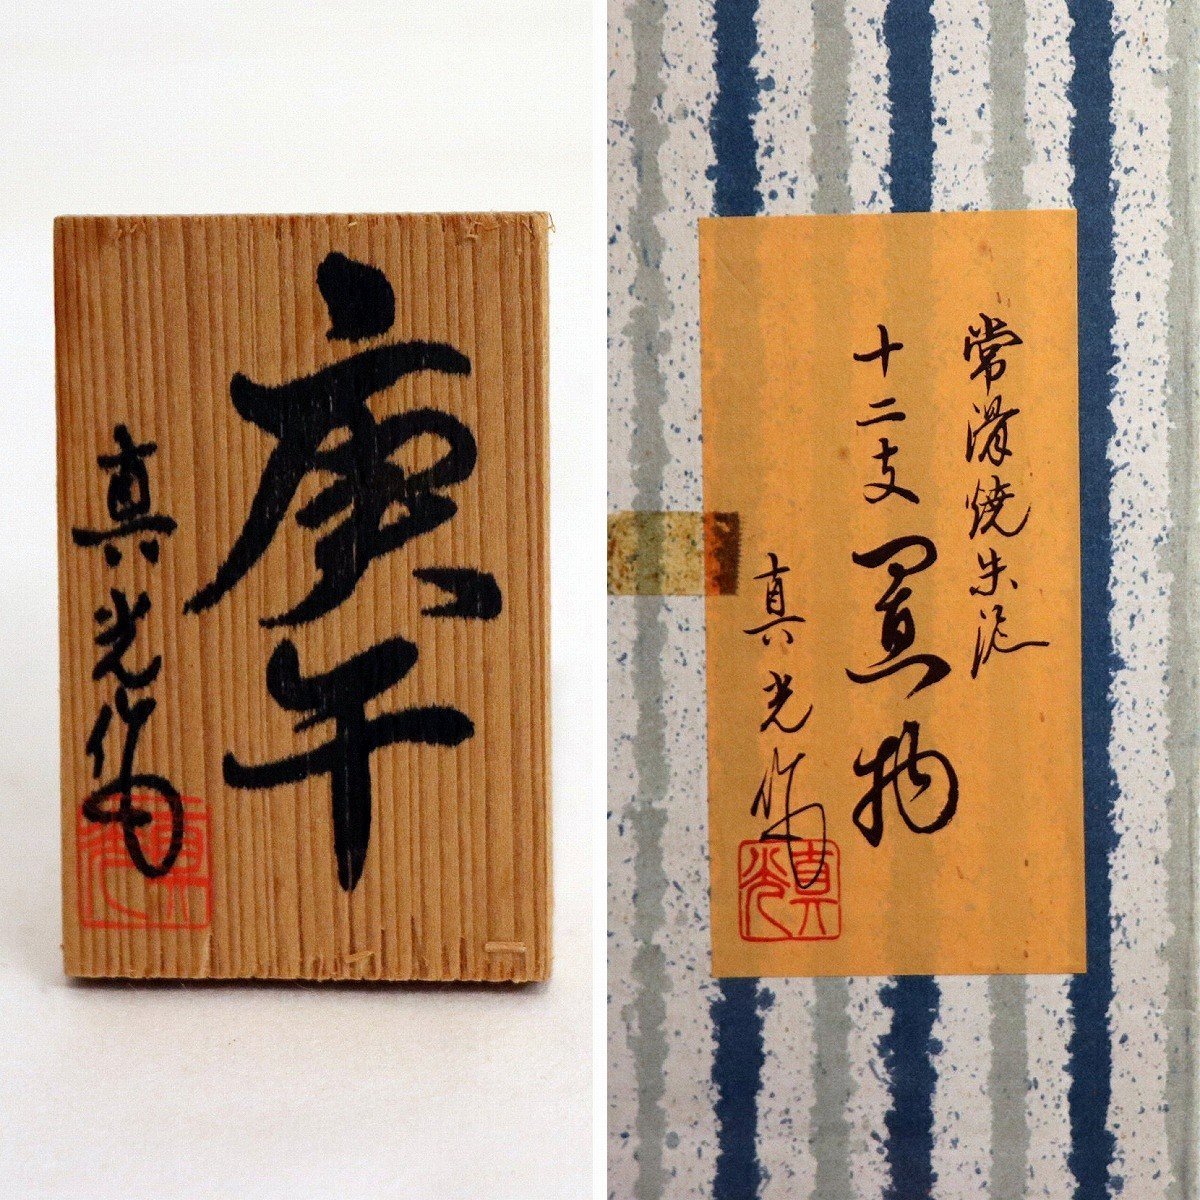 庚午
真光作
真光
常滑焼朱泥
十二支置物
真光作
真光